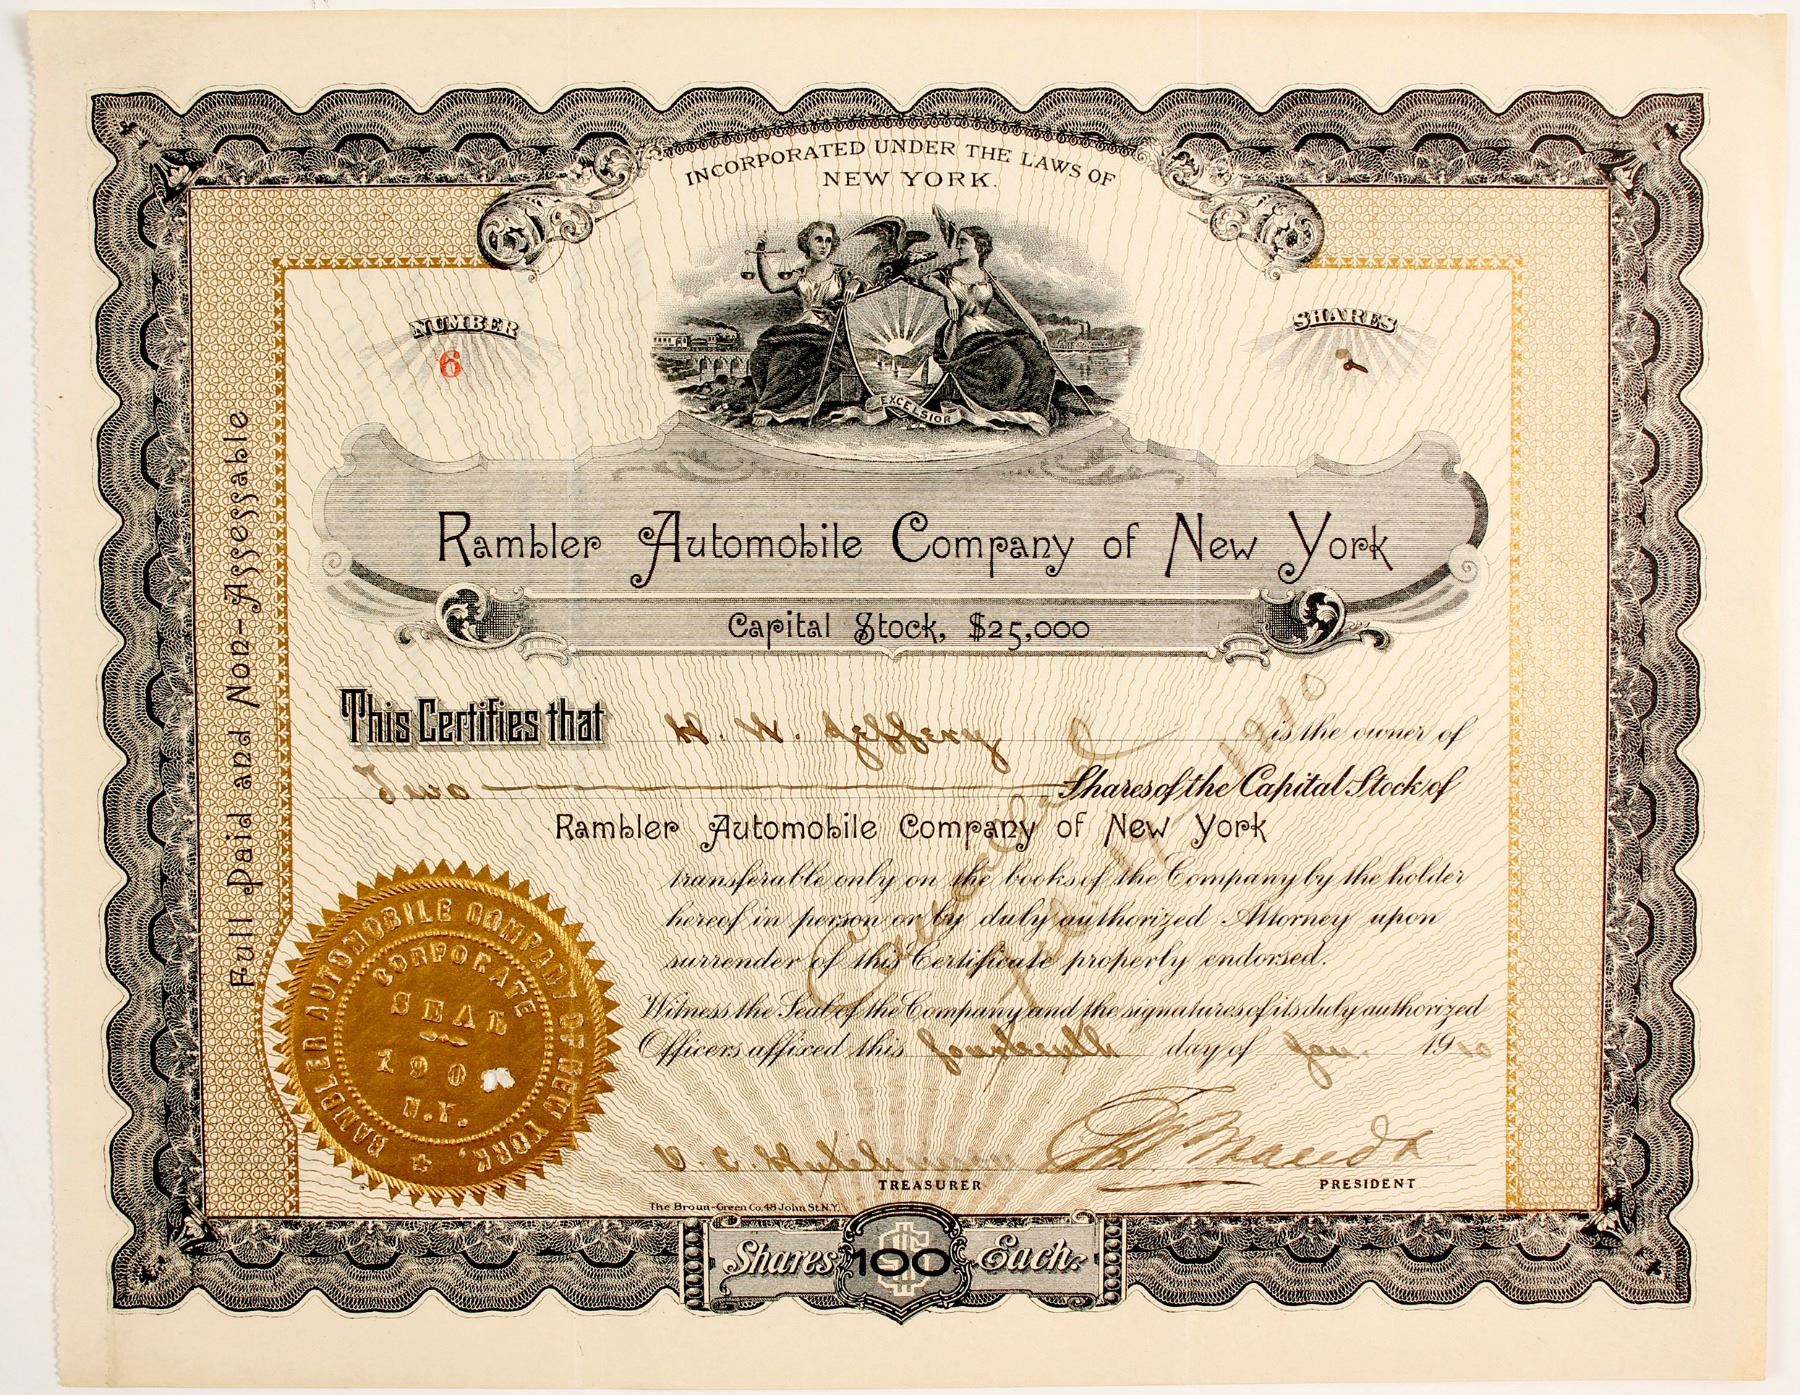 INCORPORATED UNDER THE LAWS OF
NEW YORK.
NUMBER
6
SHARES
2
EXCELSIOR
Rambler Automobile Company of New York
Capital Stock, $25,000
Full Paid and Non-Assessable
This Certifies that H. W. Jeffery is the owner of
Two Shares of the Capital Stock of
Rambler Automobile Company of New York
transferable only on the books of the Company by the holder
hereof in person or by duly authorized Attorney upon
surrender of this Certificate properly endorsed.
Witness the Seal of the Company and the signatures of its duly authorized
Officers affixed this fourteenth day of Jan. 1910
Cancelled
1910
RAMBLER AUTOMOBILE COMPANY OF NEW YORK,
CORPORATE
SEAL
190
N.Y.
TREASURER
PRESIDENT
The Broun-Green Co. 48 John St. N.Y.
Shares $100 Each.